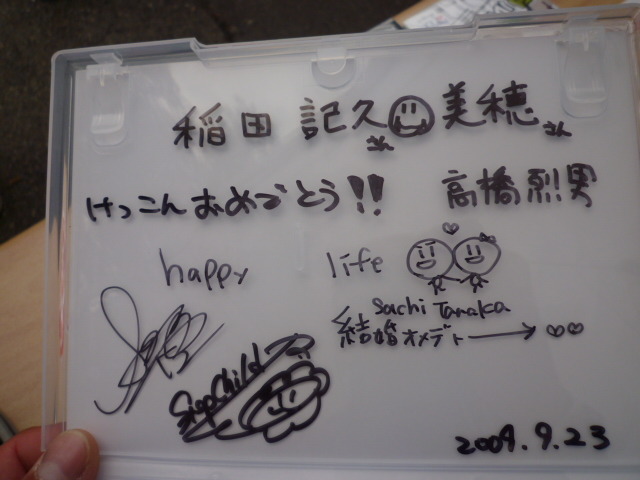 稲田 記久さん 美穂さん
けっこんおめでとう!!
高橋烈男
happy life
Sachi Tanaka
結婚オメデト
SignChild
2009.9.23